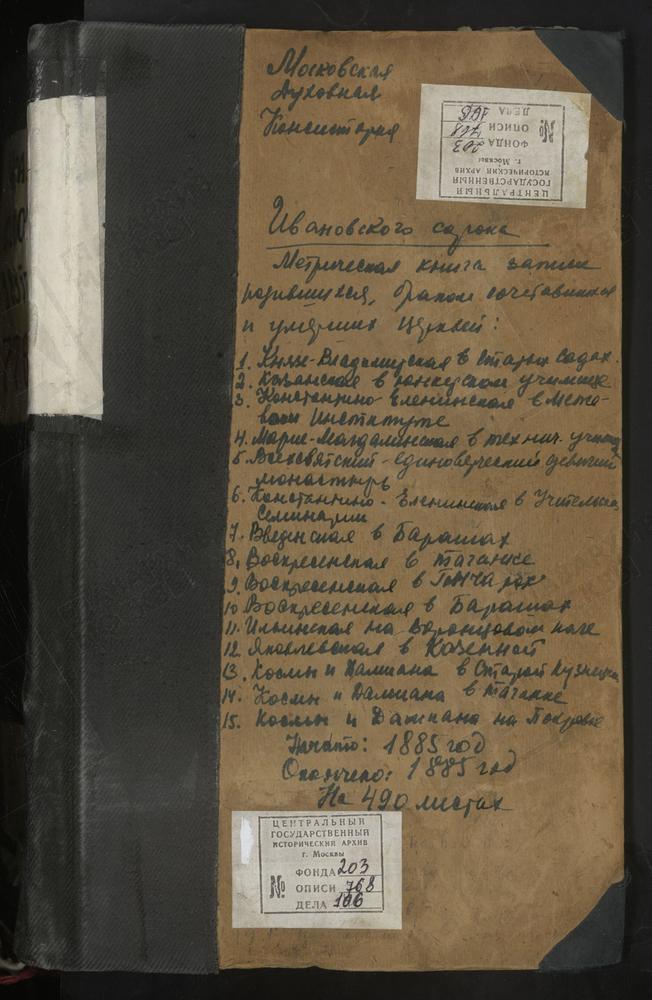 Московская
Духовная
Консистория
ЦЕНТРАЛЬНЫЙ
ГОСУДАРСТВЕННЫЙ
ИСТОРИЧЕСКИЙ АРХИВ
г. Москвы
ФОНДА 203
№ ОПИСИ 768
ДЕЛА
Ивановского сорока
Метрическая книга записи
родившихся, браком сочетавшихся
и умерших церквей:
1. Князе-Владимирская в Старых Садах.
2. Казанская в юнкерском училище
3. Константино-Еленинская в Меже-
вом Институте
4. Марие-Магдалининская в технич. училищ
5. Всехсвятский-единоверческий девичий
монастырь
6. Константино-Еленинская в Учительской
Семинарии
7. Введенская в Барашах
8. Воскресенская в Таганке
9. Воскресенская в Гончарах
10 Воскресенская в Барашах
11. Ильинская на Воронцовом поле
12. Яковлевская в Казенной
13. Космы и Дамиана в Старой Кузнецк
14. Космы и Дамиана в Таганке
15. Космы и Дамиана на Покровке
Начато: 1885 год
Окончено: 1885 год
На 490 листах
ЦЕНТРАЛЬНЫЙ
ГОСУДАРСТВЕННЫЙ
ИСТОРИЧЕСКИЙ АРХИВ
г. Москвы
ФОНДА 203
№ ОПИСИ 768
ДЕЛА 166